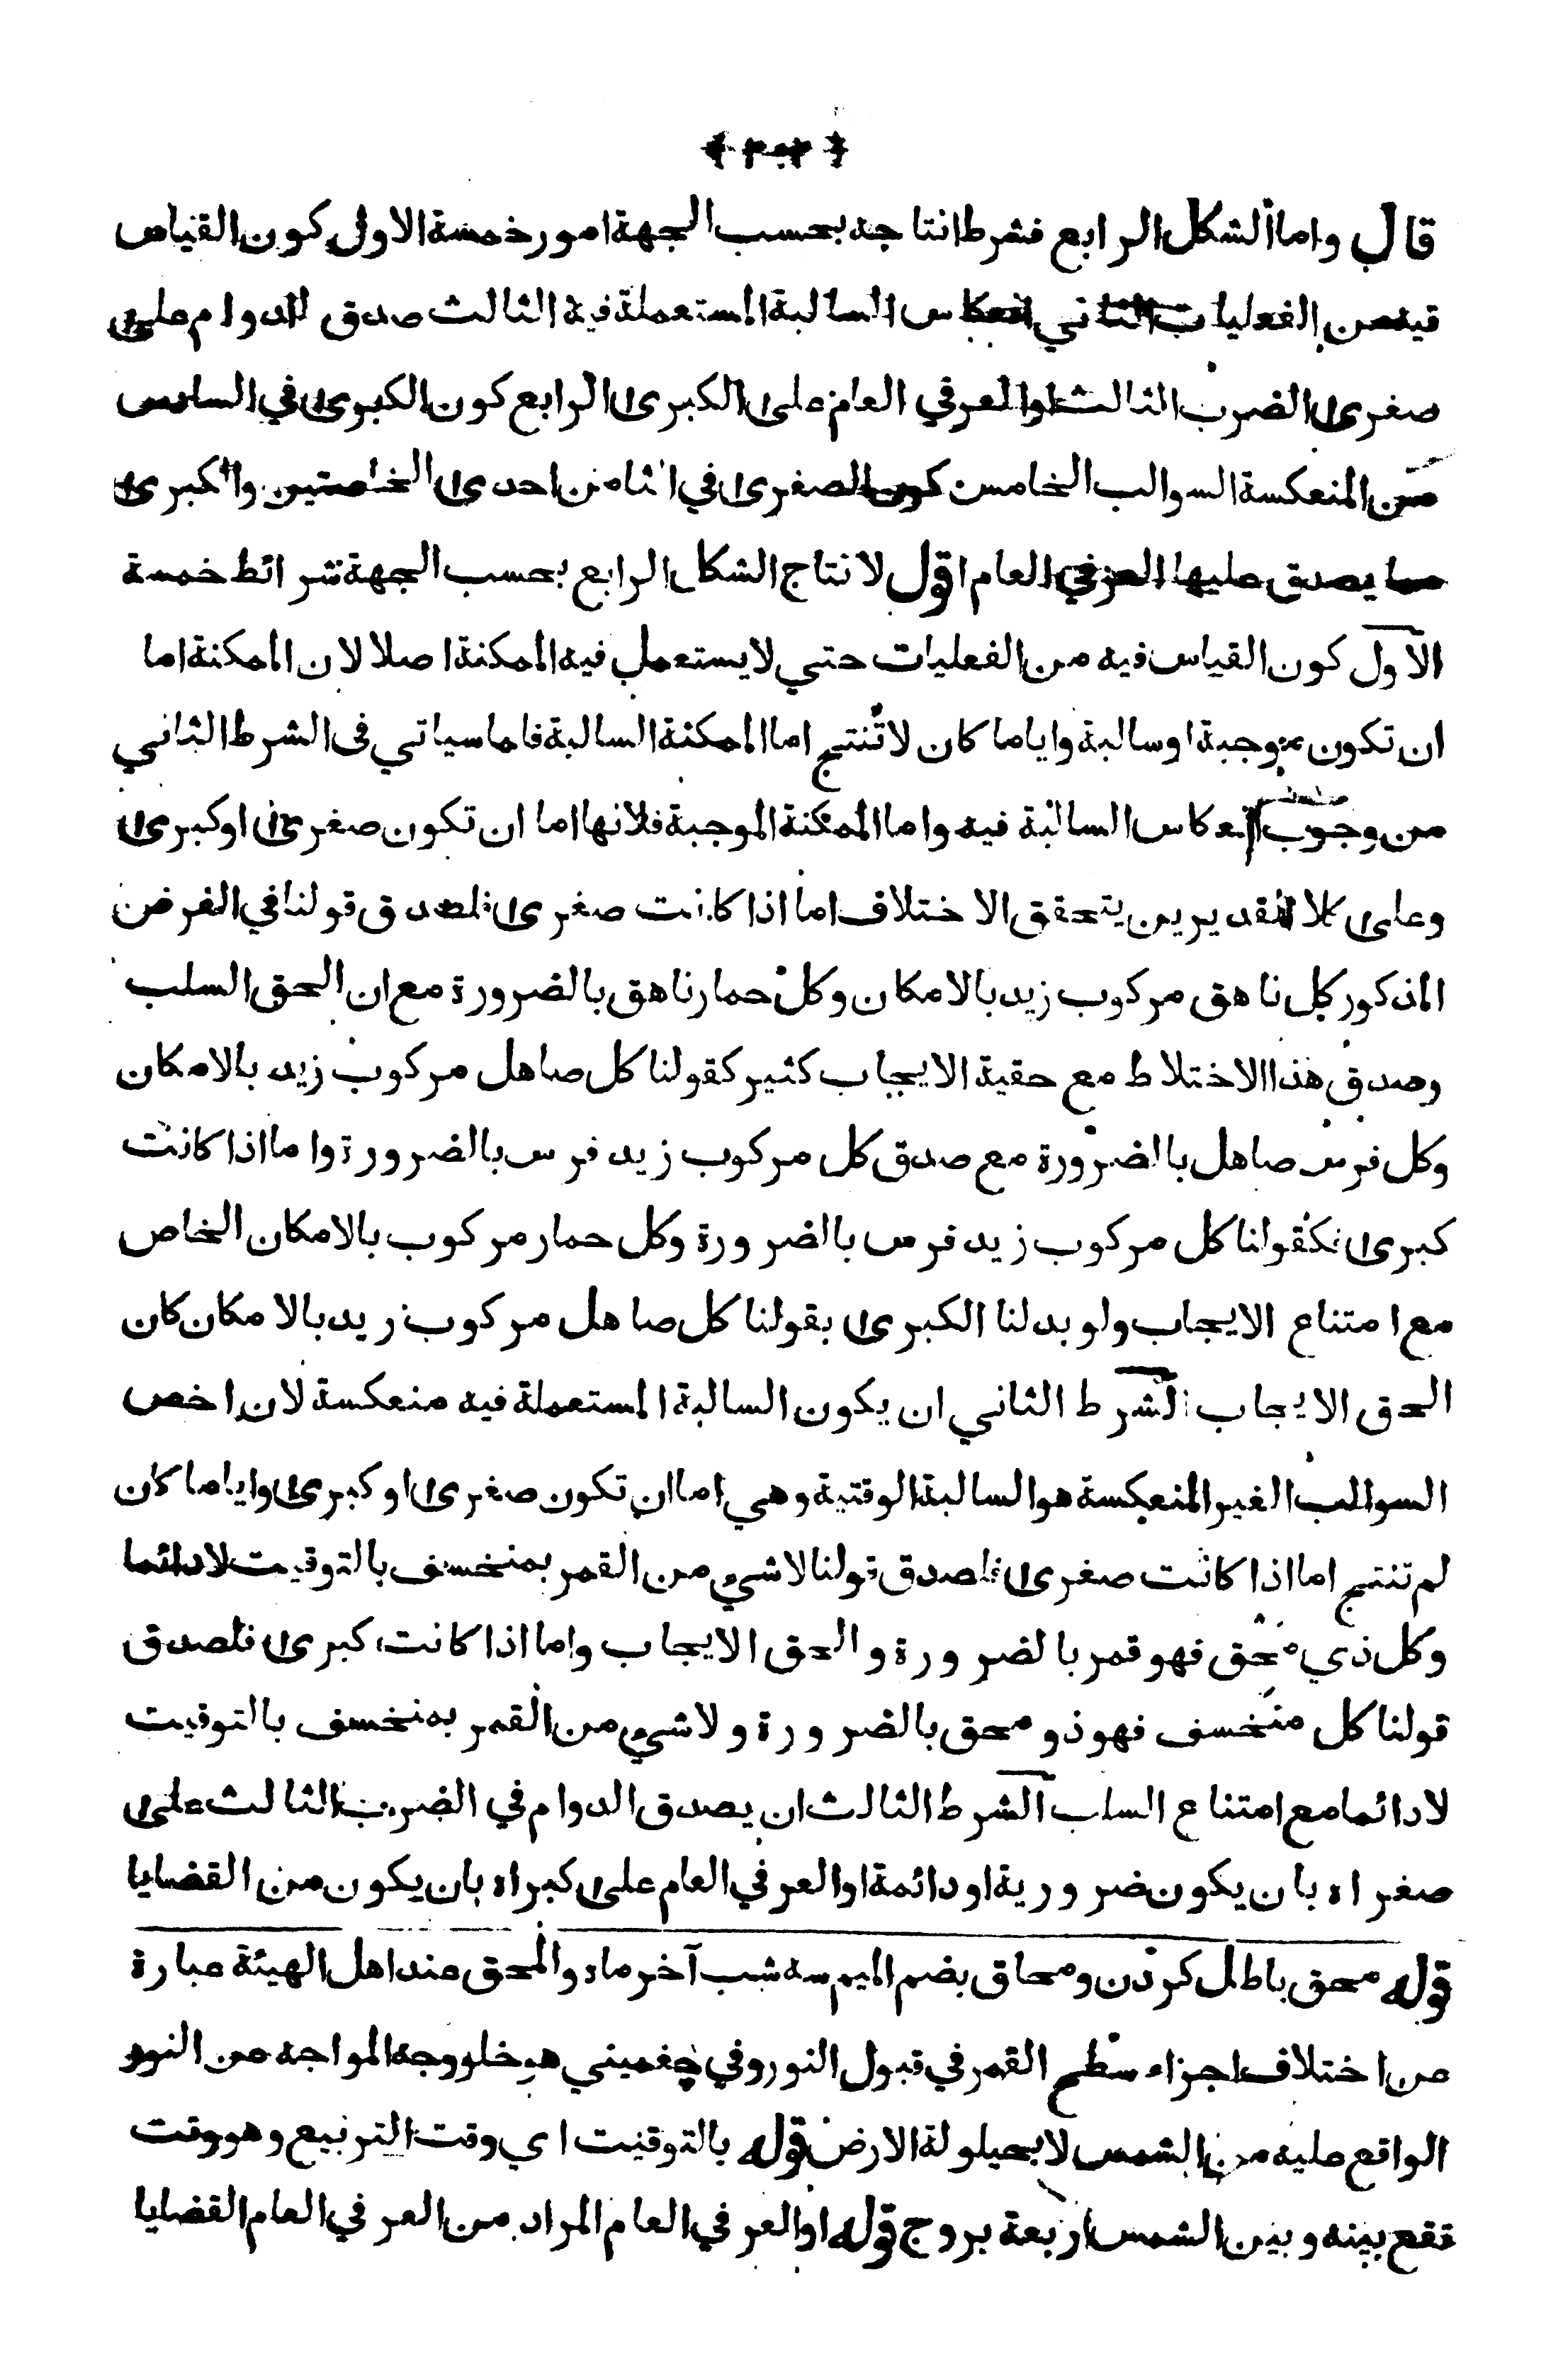 قال واما الشكل الرابع فشرط انتاجه بحسب الجهة امور خمسة الاول كون القياس
فيه من الفعليات الثاني انعكاس السالبة المستعملة فيه الثالث صدق الدوام على
صغرى الضرب الثالث او العرفي العام على الكبرى الرابع كون الكبرى في السادس
من المنعكسة السوالب الخامس كون الصغرى في الثامن احدى الخاصتين والكبرى
مما يصدق عليها العرفي العام اقول لانتاج الشكل الرابع بحسب الجهة شرائط خمسة
الاول كون القياس فيه من الفعليات حتي لا يستعمل فيه الممكنة اصلا لان الممكنة اما
ان تكون موجبة او سالبة واياما كان لا تنتج اما الممكنة السالبة فلما سياتي في الشرط الثاني
من وجوب انعكاس السالبة فيه واما الممكنة الموجبة فلانها اما ان تكون صغرى او كبرى
وعلى كلا التقديرين يتحقق الاختلاف اما اذا كانت صغرى فلصدق قولنا في الفرض
المذكور كل ناهق مركوب زيد بالامكان وكل حمار ناهق بالضرورة مع ان الحق السلب
وصدق هذا الاختلاط مع حقية الايجاب كثير كقولنا كل صاهل مركوب زيد بالامكان
وكل فرس صاهل بالضرورة مع صدق كل مركوب زيد فرس بالضرورة واما اذا كانت
كبرى فكقولنا كل مركوب زيد فرس بالضرورة وكل حمار مركوب بالامكان الخاص
مع امتناع الايجاب ولو بدلنا الكبرى بقولنا كل صاهل مركوب زيد بالامكان كان
الحق الايجاب الشرط الثاني ان يكون السالبة المستعملة فيه منعكسة لان اخص
السوالب الغير المنعكسة هو السالبة الوقتية وهي اما ان تكون صغرى او كبرى واياما كان
لم تنتج اما اذا كانت صغرى فلصدق قولنا لا شيء من القمر بمنخسف بالتوقيت لا دائما
وكل ذي محق فهو قمر بالضرورة والحق الايجاب واما اذا كانت كبرى فلصدق
قولنا كل منخسف فهو ذو محق بالضرورة ولا شيء من القمر بمنخسف بالتوقيت
لا دائما مع امتناع السلب الشرط الثالث ان يصدق الدوام في الضرب الثالث على
صغراه بان يكون ضرورية او دائمة او العرفي العام على كبراه بان يكون من القضايا
قوله محق باطل كردن ومحاق بضم الميم سه شب آخر ماه والمحق عند اهل الهيئة عبارة
من اختلاف اجزاء سطح القمر في قبول النور وفي چغميني هو خلو وجه المواجه من النور
الواقع عليه من الشمس لا بحيلولة الارض قوله بالتوقيت اي وقت التربيع وهو وقت
تقع بينه وبين الشمس اربعة بروج قوله او العرفي العام المراد من العرفي العام القضايا